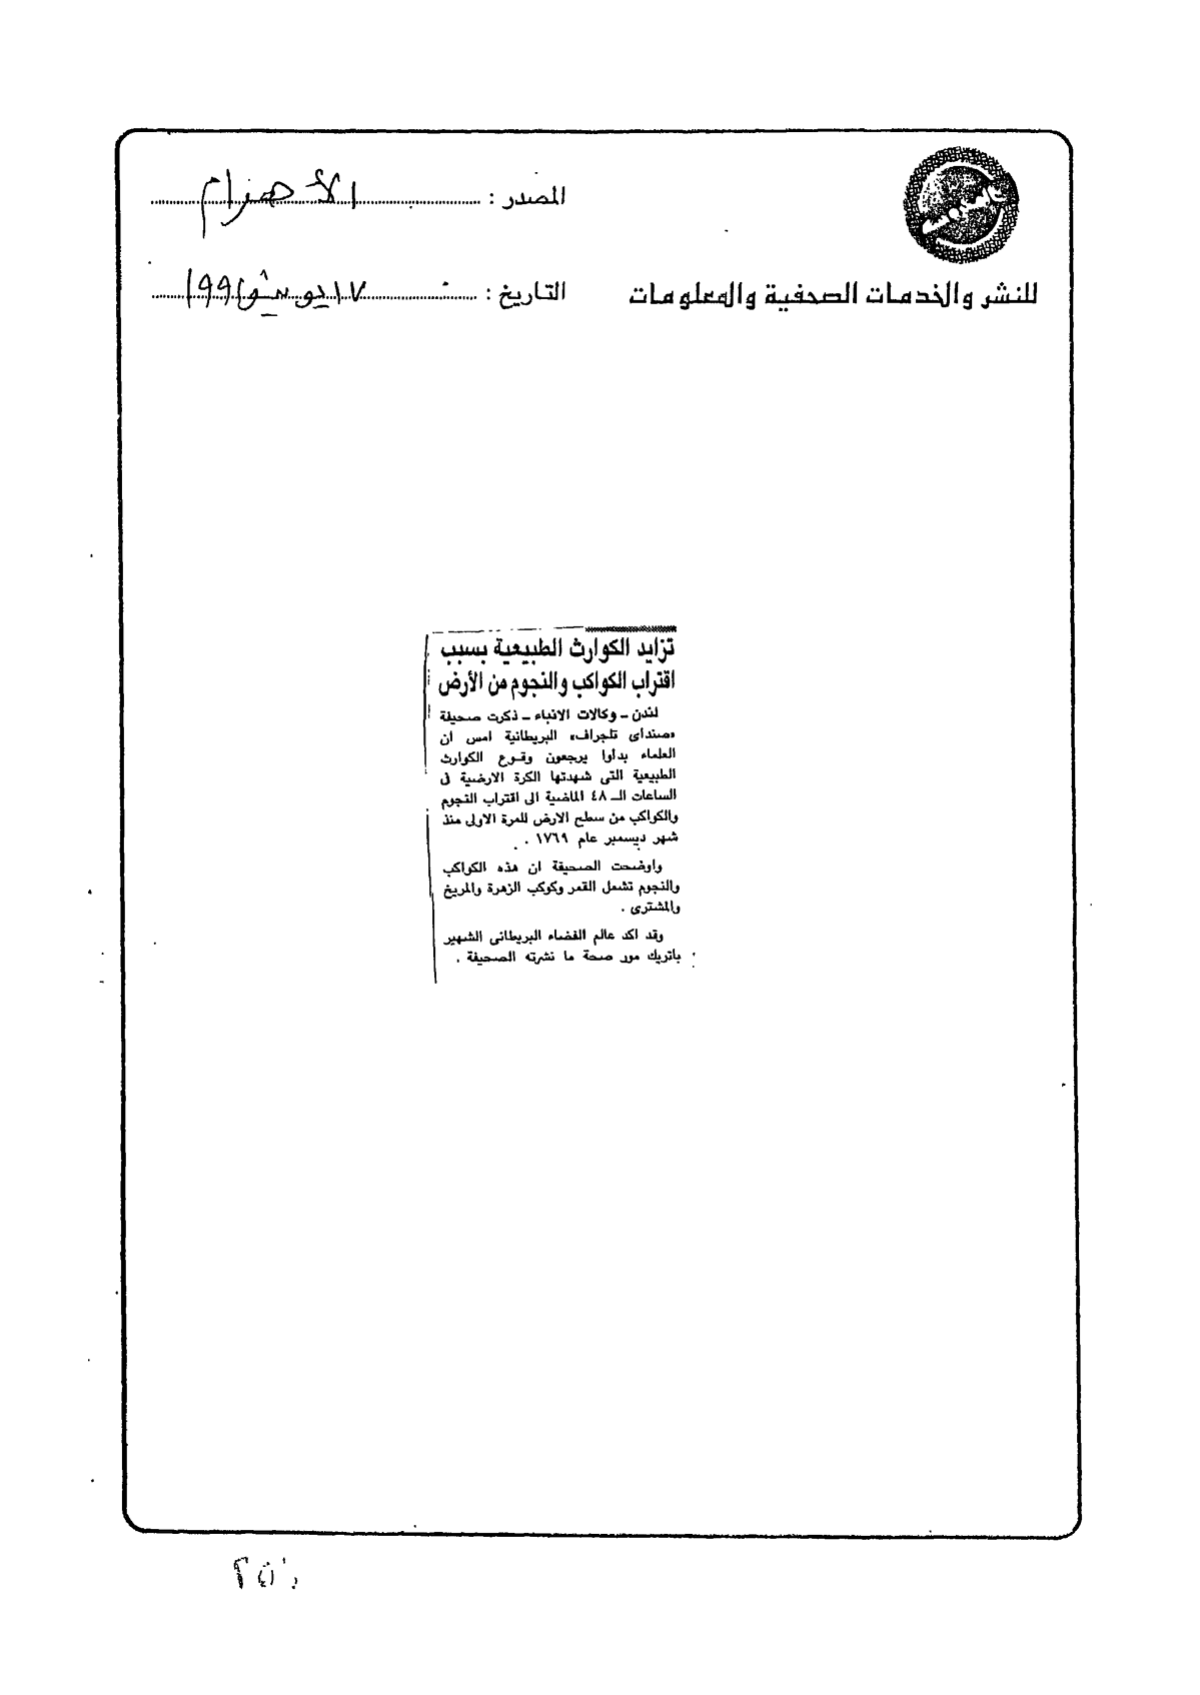 المصدر : الأهرام
للنشر والخدمات الصحفية والمعلومات
التاريخ : ١٧ يونيو ١٩٩١
تزايد الكوارث الطبيعية بسبب
اقتراب الكواكب والنجوم من الأرض
لندن ــ وكالات الانباء ــ ذكرت صحيفة
«صنداى تلجراف» البريطانية امس ان
العلماء بداوا يرجعون وقوع الكوارث
الطبيعية التى شهدتها الكرة الارضية فى
الساعات الــ ٤٨ الماضية الى اقتراب النجوم
والكواكب من سطح الارض للمرة الاولى منذ
شهر ديسمبر عام ١٧٦٩ .
واوضحت الصحيفة ان هذه الكواكب
والنجوم تشمل القمر وكوكب الزهرة والمريخ
والمشترى .
وقد اكد عالم الفضاء البريطانى الشهير
باتريك مور صحة ما نشرته الصحيفة .